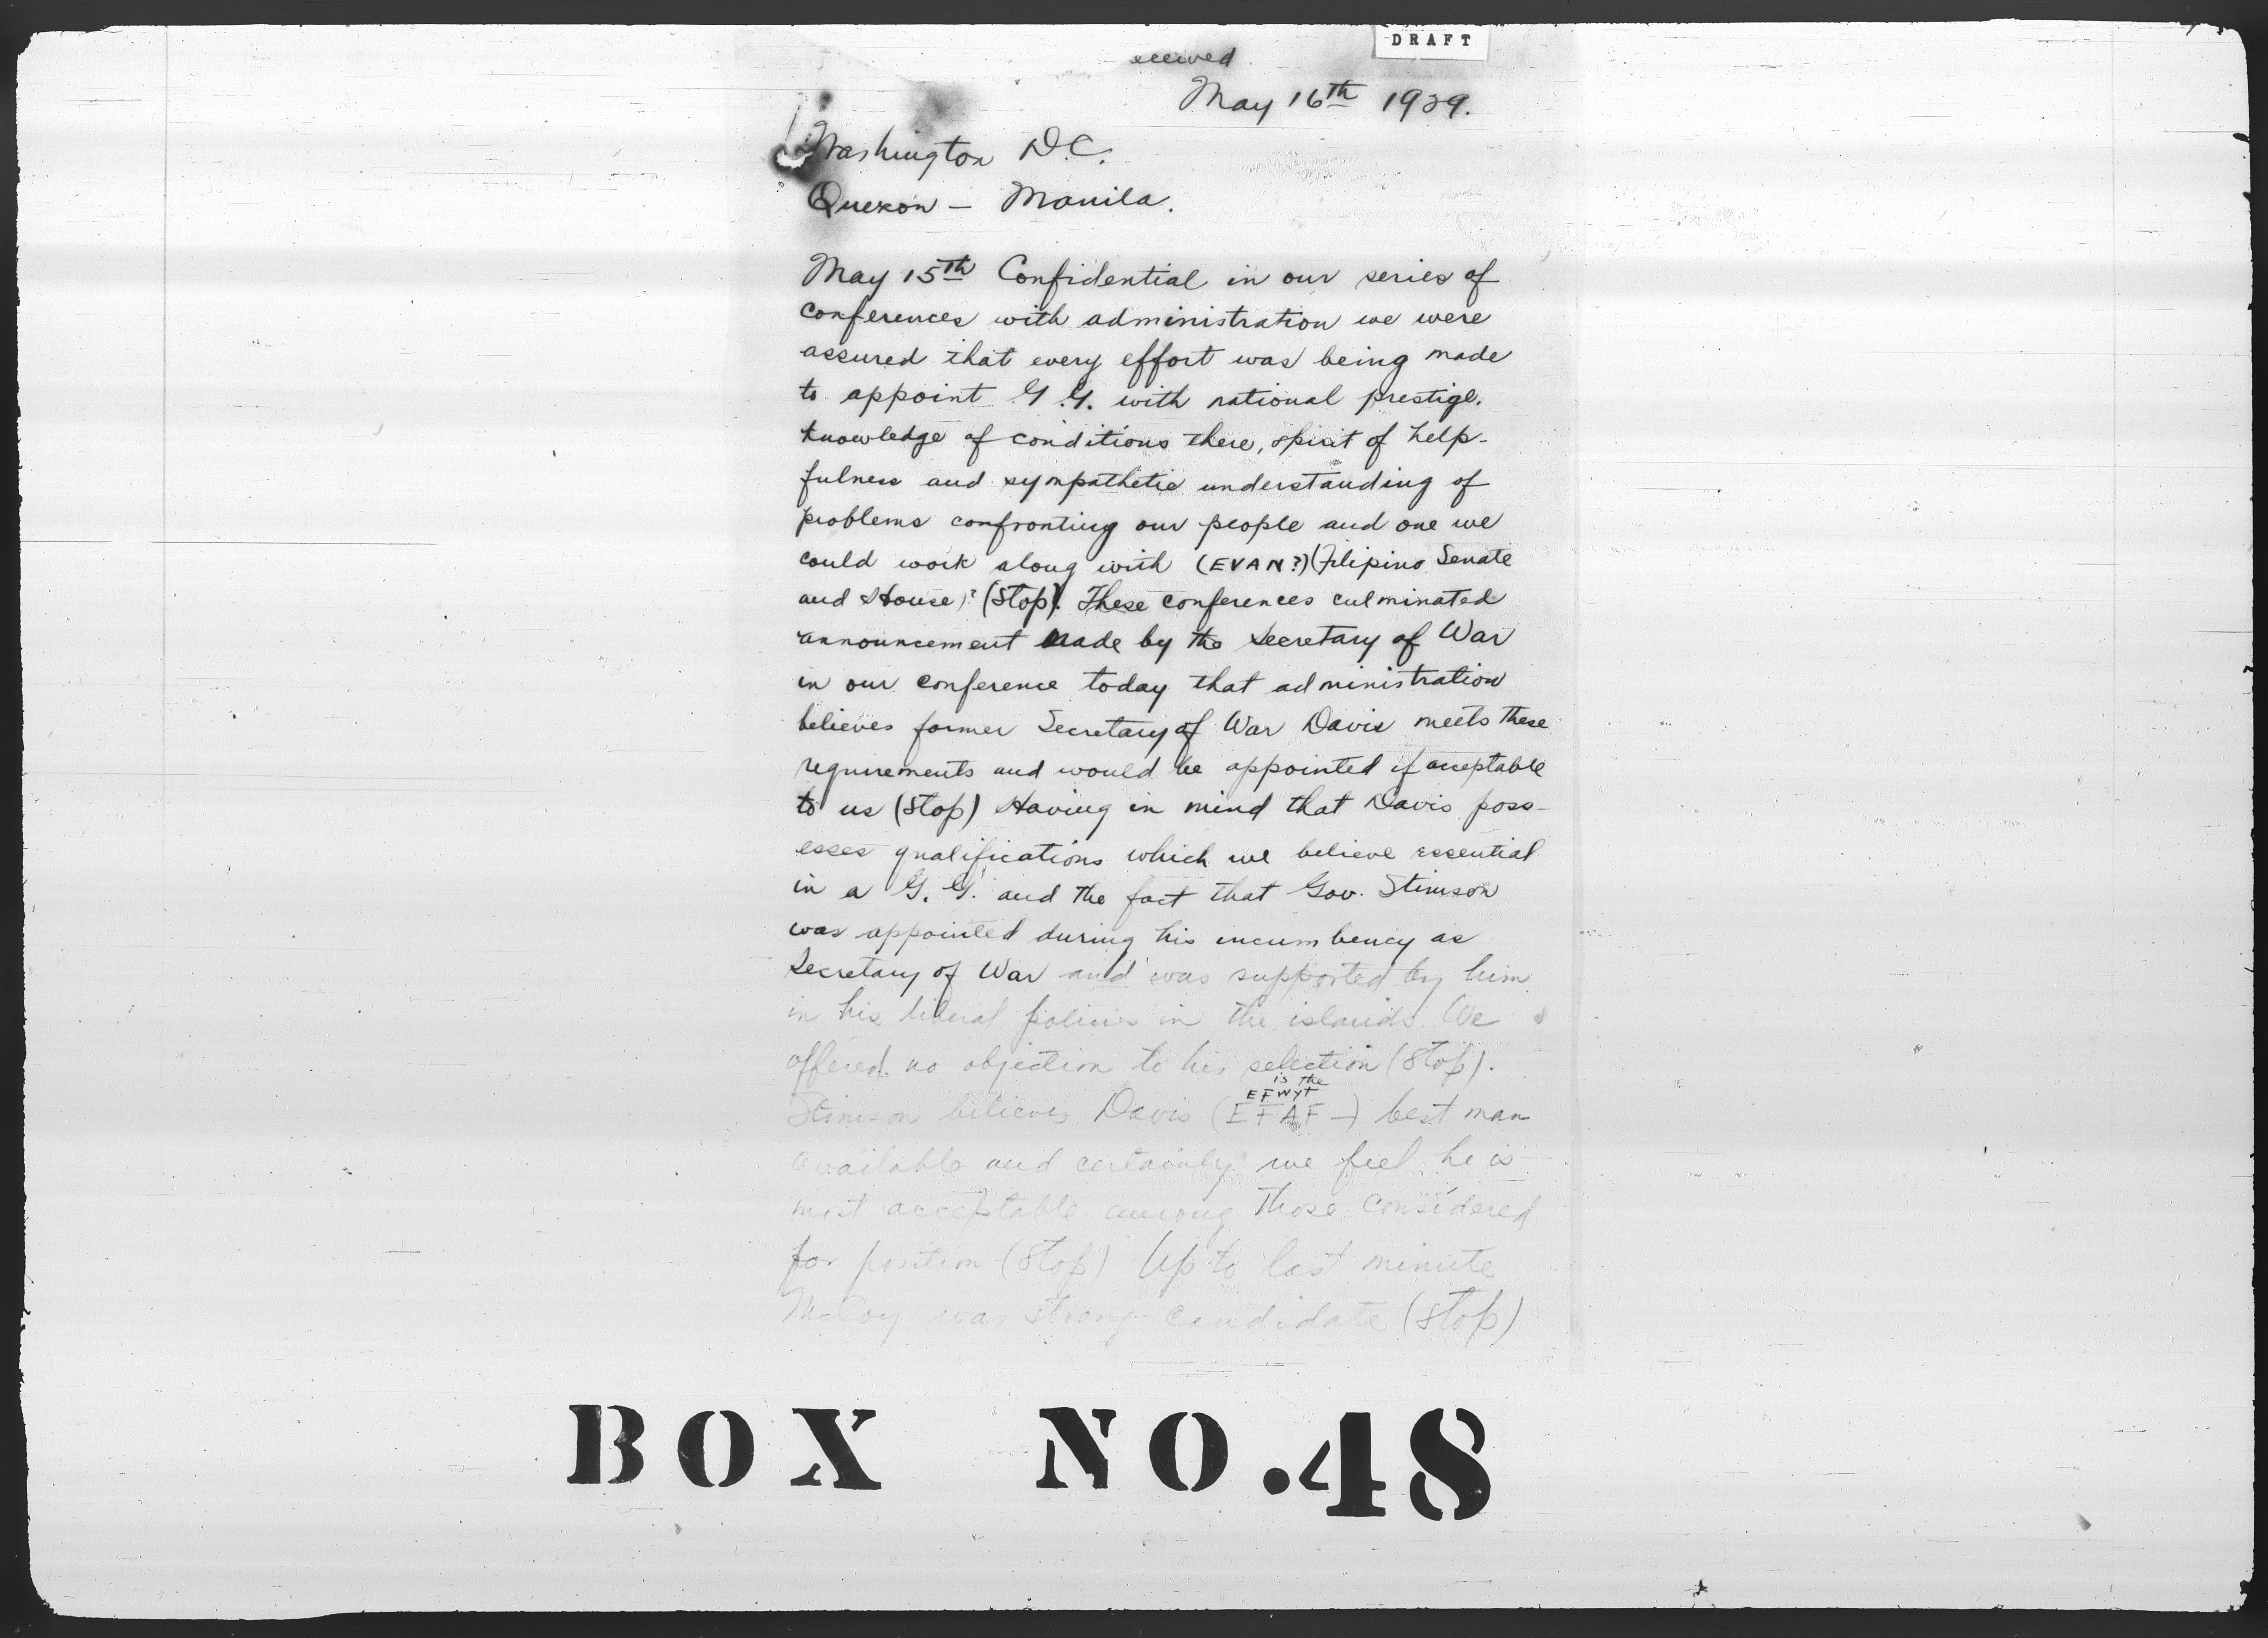 DRAFT
eceived
May 16th 1929.
Washington D.C.
Quezon — Manila.
May 15th Confidential in our series of
conferences with administration we were
assured that every effort was being made
to appoint G.G. with national prestige.
knowledge of conditions there, spirit of help-
fulness and sympathetic understanding of
problems confronting our people and one we
could work along with (EVAN?) (Filipino Senate
and House)? (Stop). These conferences culminated
announcement made by the Secretary of War
in our conference today that administration
believes former Secretary of War Davis meets these
requirements and would be appointed if acceptable
to us (Stop) Having in mind that Davis poss-
esses qualifications which we believe essential
in a G.G. and the fact that Gov. Stimson
was appointed during his incumbency as
Secretary of War and was supported by him
in his liberal policies in the islands We
offered no objection to his selection (Stop).
is the
EFWYT
Stimson believes Davis (EFAF—) best man
available and certainly we feel he is
most acceptable among those considered
for position (Stop) Up to last minute
McCoy was strong candidate (Stop)
BOX NO.48